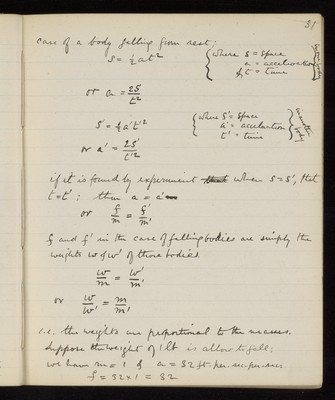 31
case of a body falling from rest:
S = ½at² { where S = space
a = acceleration
& t = time
or a = 2S/t²
S' = ½a't'² { where S' = space
a' = acceleration
t' = time } in another body
or a' = 2S'/t'²
if it is found by experiment that when S = S', that
t = t' : then a = a'
or f/m = f'/m'
f and f' in the case of falling bodies are simply the
weights w & w' of those bodies.
w/m = w'/m'
or w/w' = m/m'
i.e. the weights are proportional to the masses.
Suppose the weight of 1 lb is allow to fall;
we have m = 1 & a = 32 ft. per. sec. per. sec
f = 32 × 1 = 32